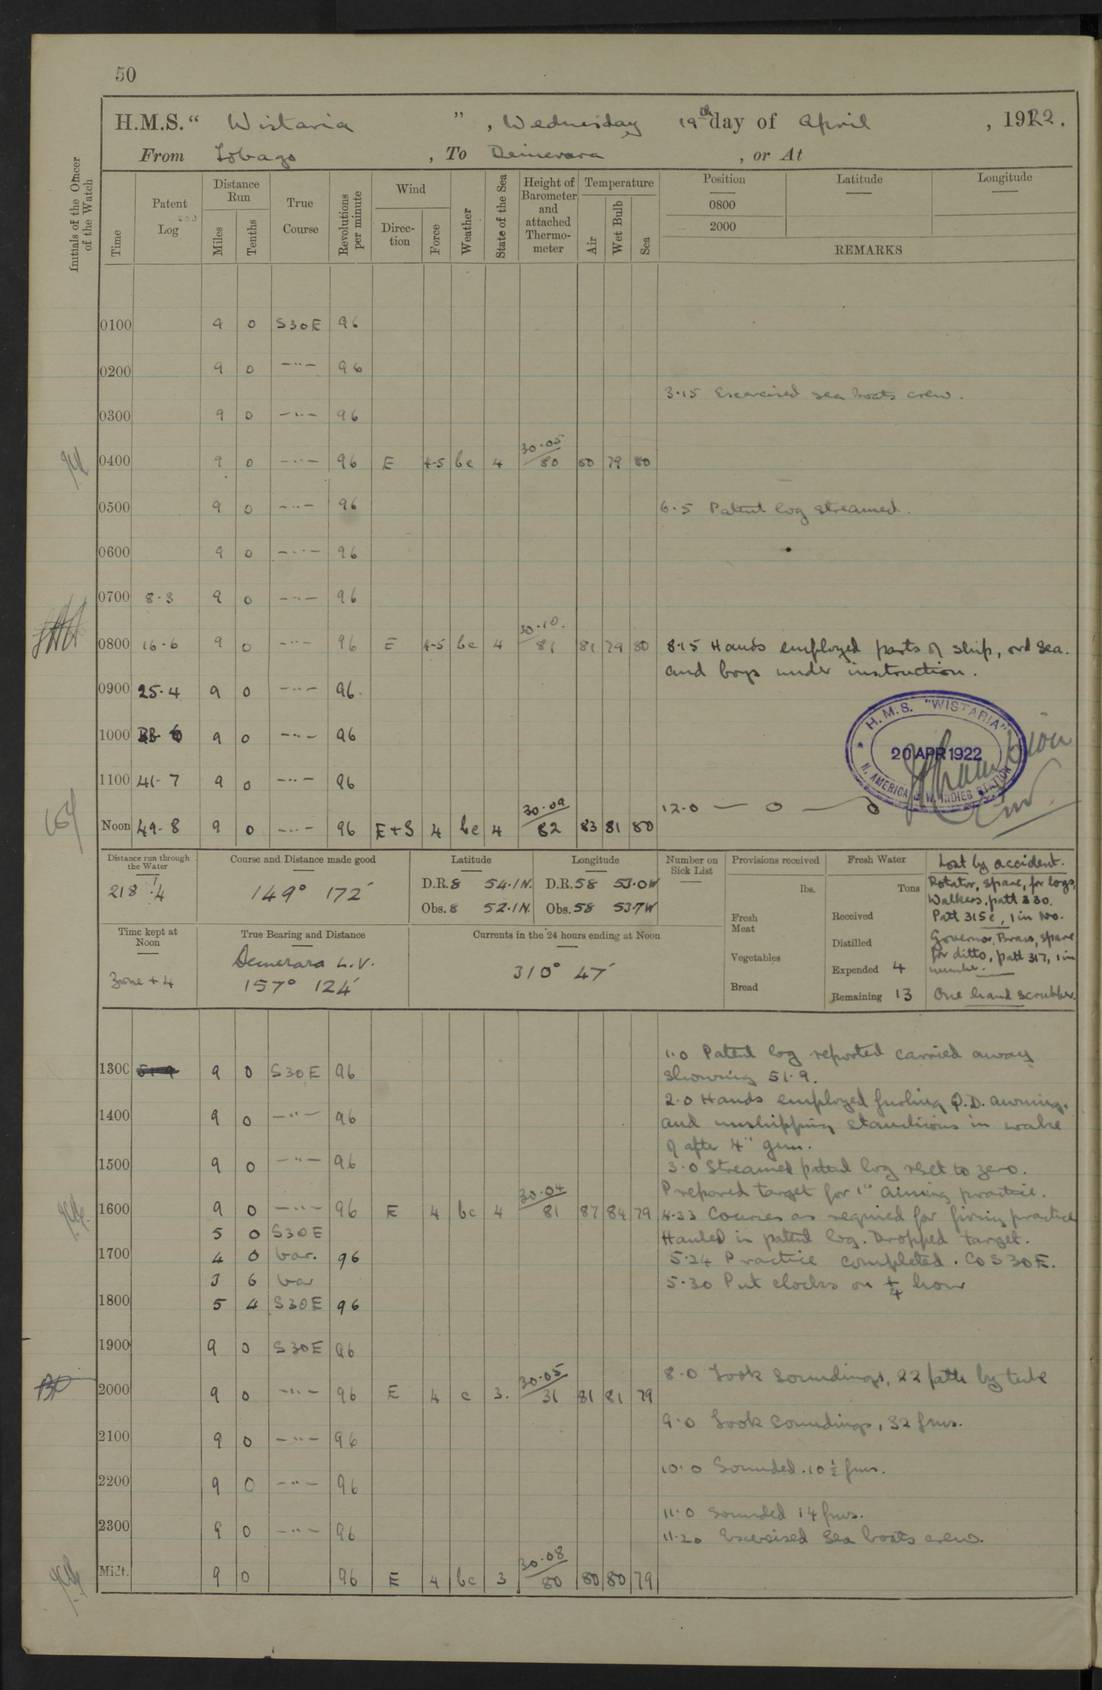 50
H.M.S. " Wistaria ", Wednesday 19th day of April, 1922.
From Tobago, To Demerara, or At
Initials of the Officer of the Watch
Time
Patent Log
Distance Run
Miles
Tenths
True Course
Revolutions per minute
Wind
Direction
Force
Weather
State of the Sea
Height of Barometer and attached Thermometer
Temperature
Air
Wet Bulb
Sea
Position
Latitude
Longitude
0800
2000
REMARKS
0100 9 0 S30E 96
0200 9 0 -"- 96
3.15 Exercised sea boats crew.
0300 9 0 -"- 96
0400 9 0 -"- 96 E 4-5 bc 4 30.05/80 80 79 80
0500 9 0 -"- 96 6.5 Patent log streamed.
0600 9 0 -"- 96
0700 8.3 9 0 -"- 96
0800 16.6 9 0 -"- 96 E 4-5 bc 4 30.10/81 81 79 80 8.15 Hands employed parts of ship, ord sea.
and boys under instruction.
0900 25.4 9 0 -"- 96
1000 9 0 -"- 96
H.M.S. "WISTARIA"
20 APR 1922
N. AMERICA & W. INDIES STATION
1100 41.7 9 0 -"- 96
Noon 49.8 9 0 -"- 96 E+S 4 bc 4 30.09/82 83 81 80 12.0 — 0 — 0
Distance run through the Water
218.4
Course and Distance made good
149° 172'
Latitude
D.R. 8 54.1N.
Obs. 8 52.1N.
Longitude
D.R. 58 53.0W
Obs. 58 53.7W
Number on Sick List
Provisions received
lbs.
Fresh Meat
Vegetables
Bread
Fresh Water
Tons
Received
Distilled
Expended 4
Remaining 13
Lost by accident.
Rotator, spare, for logs,
Walkers, patt 330.
Patt 315c, 1 in No.
Governor, Brass, spare
for ditto, patt 317, 1 in
number.
One hand scrubber.
Time kept at Noon
Zone + 4
True Bearing and Distance
Demerara L.V.
157° 124'
Currents in the 24 hours ending at Noon
310° 47'
1.0 Patent log reported carried away
1300 51.9 9 0 S30E 96 showing 51.9.
2.0 Hands employed furling Q.D. awning.
1400 9 0 -"- 96 and unshipping stanchions in wake
of after 4" gun.
1500 9 0 -"- 96 3.0 Streamed patent log reset to zero.
Prepared target for 1" aiming practice.
1600 9 0 -"- 96 E 4 bc 4 30.04/81 87 84 79 4.33 Courses as required for firing practice
5 0 S30E Hauled in patent log. Dropped target.
1700 4 0 var. 96 5.24 Practice completed. Co S30E.
3 6 var 5.30 Put clocks on 1/4 hour
1800 5 4 S30E 96
1900 9 0 S30E 96
8.0 Took soundings, 22 faths by tube
2000 9 0 -"- 96 E 4 c 3. 30.05/81 81 81 79
9.0 Took soundings, 32 fms.
2100 9 0 -"- 96
10.0 Sounded. 10½ fms.
2200 9 0 -"- 96
11.0 Sounded 14 fms.
2300 9 0 -"- 96 11.20 Exercised Sea boats crew.
Midt. 9 0 96 E 4 bc 3 30.08/80 80 80 79